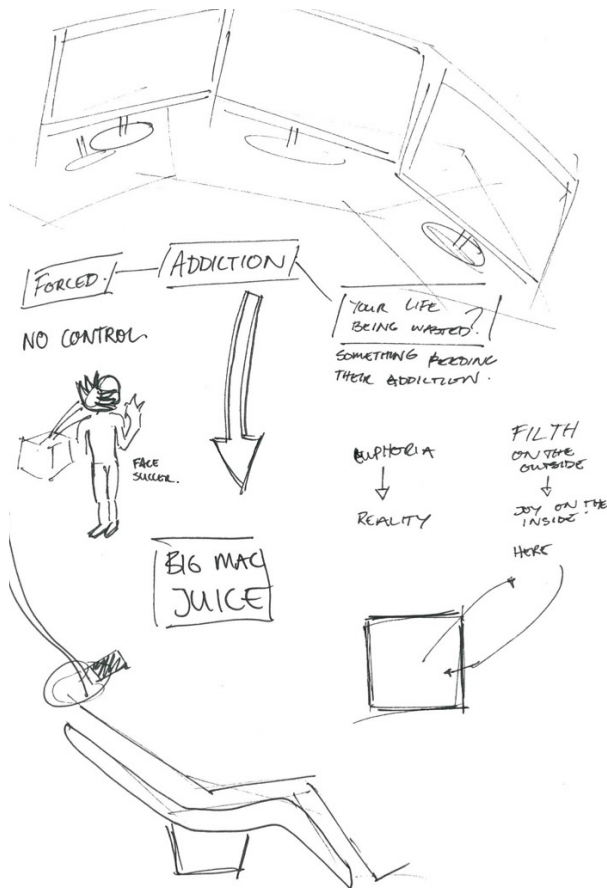 FORCED.
ADDICTION
YOUR LIFE
BEING WASTED?
NO CONTROL
SOMETHING FEEDING
THEIR ADDICTION.
FACE
SUCKER.
EUPHORIA
REALITY
FILTH
ON THE
OUTSIDE
JOY ON THE
INSIDE.
HERE
BIG MAC
JUICE